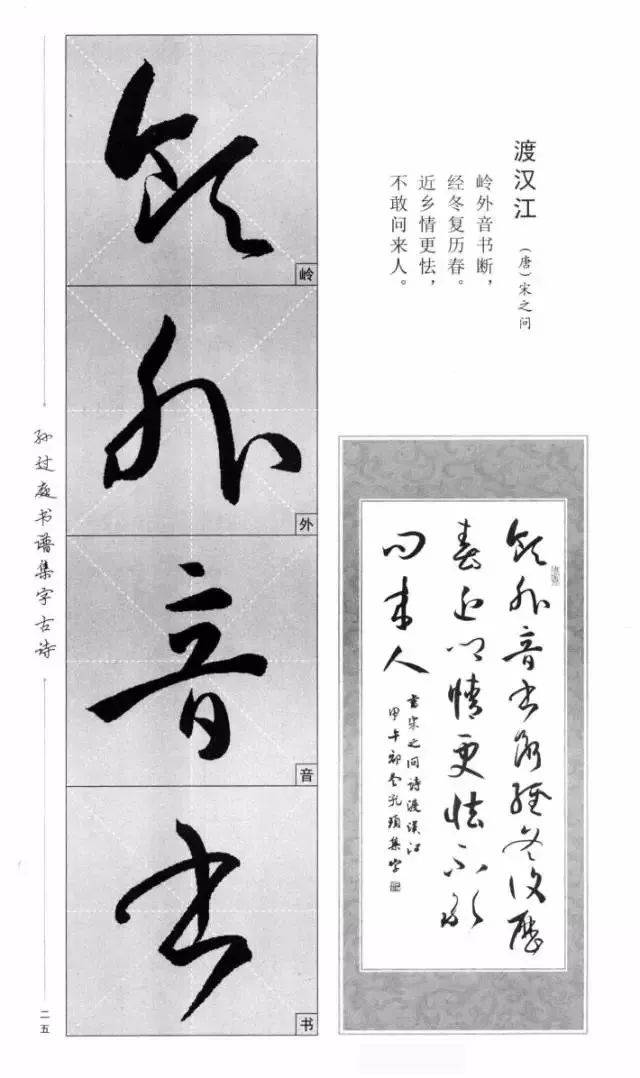 渡汉江
（唐）宋之问
岭外音书断，
经冬复历春。
近乡情更怯，
不敢问来人。
領外音書斷經冬復歷
春近鄉情更怯不敢
問來人
書宋之问诗渡漢江
甲午初冬孔集字
領
岭
外
外
音
音
書
书
孙过庭书谱集字古诗
二五